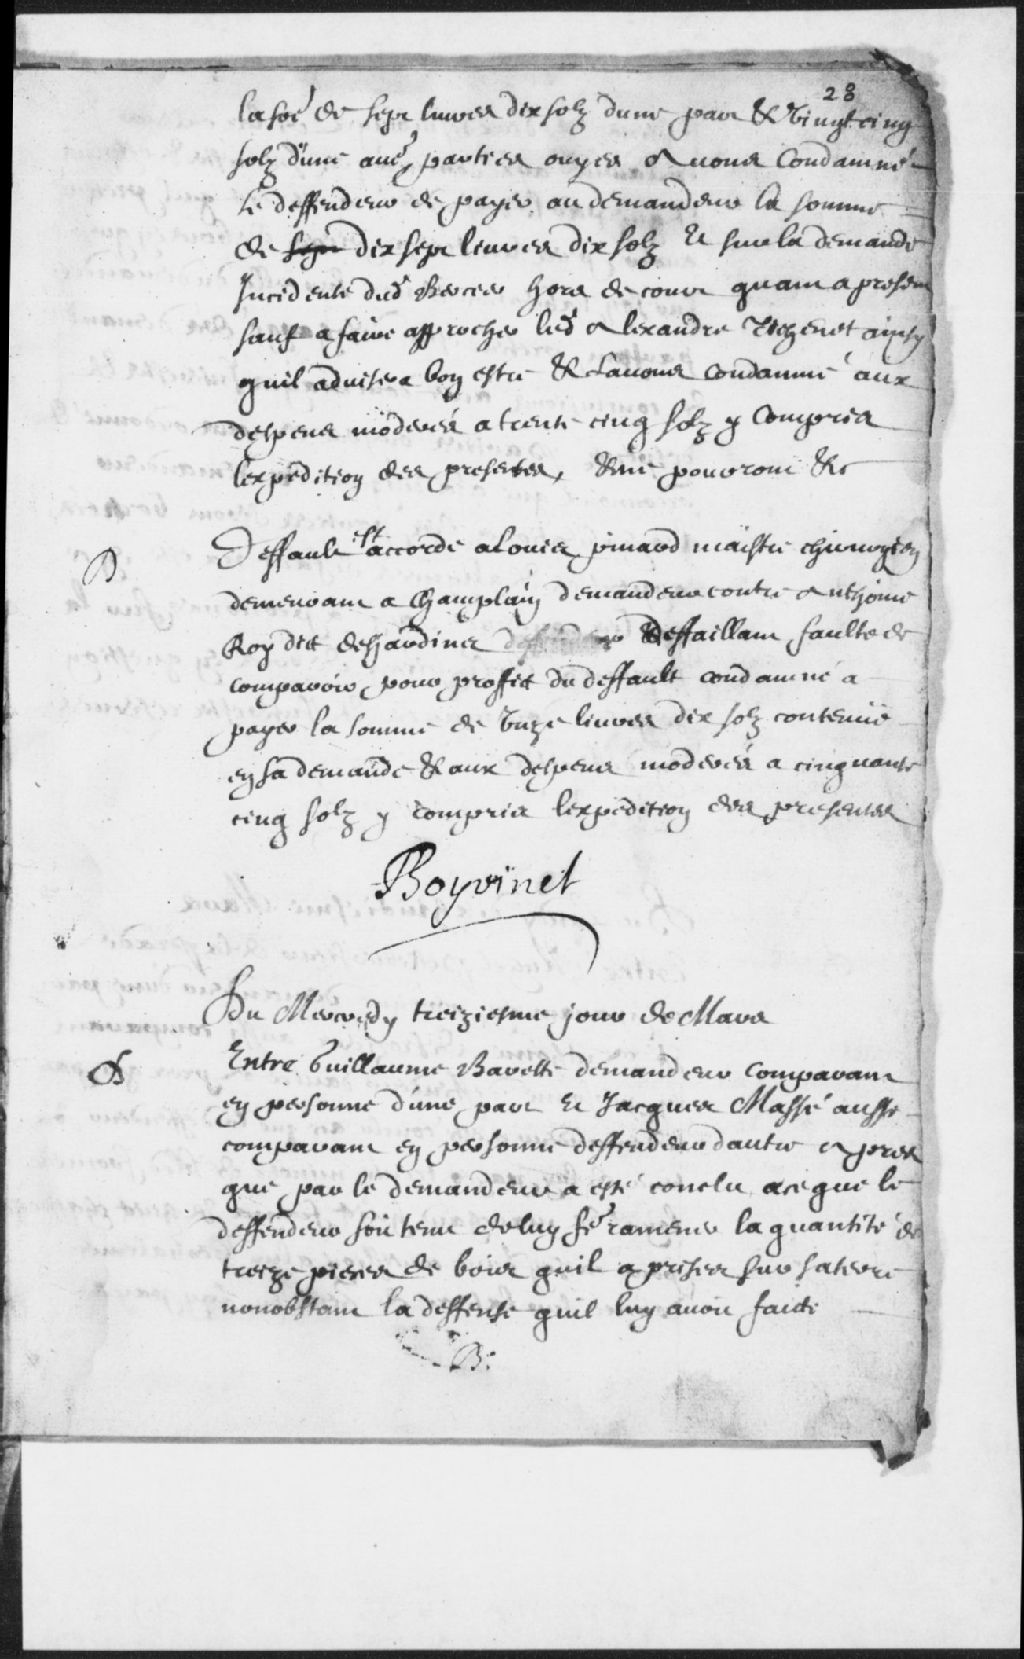 28
la soe de sept liures dix solz dune part & vingt cinq
solz d'une autre, parties ouyes Auons Condamné
le deffendeur de payer au demandeur la somme
de sept dix sept liures dix solz Et sur la demande
Incidente dud Mercier hors de cour quant a present
sauf a faire approcher led Alexandre Techenet ainsy
quil aduisera bon estre & Lauons condamné aux
despens moderés a trente cinq solz y Compris
lexpedition des presentes, & ne pourront &c
Deffault est accordé a Louis pinard maistre chirurgien
demeurant a Champlain demandeur contre Anthoine
Roy dit desjardins deffendeur deffaillant faulte de
comparoir, pour proffit du deffault condamné a
payer la somme de Unze liures dix solz contenue
en sa demande & aux despens moderés a cinquante
cinq solz y compris lexpedition des presentes
Boyvinet
Du Mercredy treiziesme jour de Mars
Entre Guillaume Barette demandeur comparant
en personne d'une part Et Jacques Massé aussi
comparant en personne deffendeur dautre Apres
que par le demandeur a esté conclu a ce que le
deffendeur soit tenu de luy fe ramener la quantité de
treize pieces de bois quil a prises sur sa terre
nonobstant la deffense quil luy auoit faicte
B.